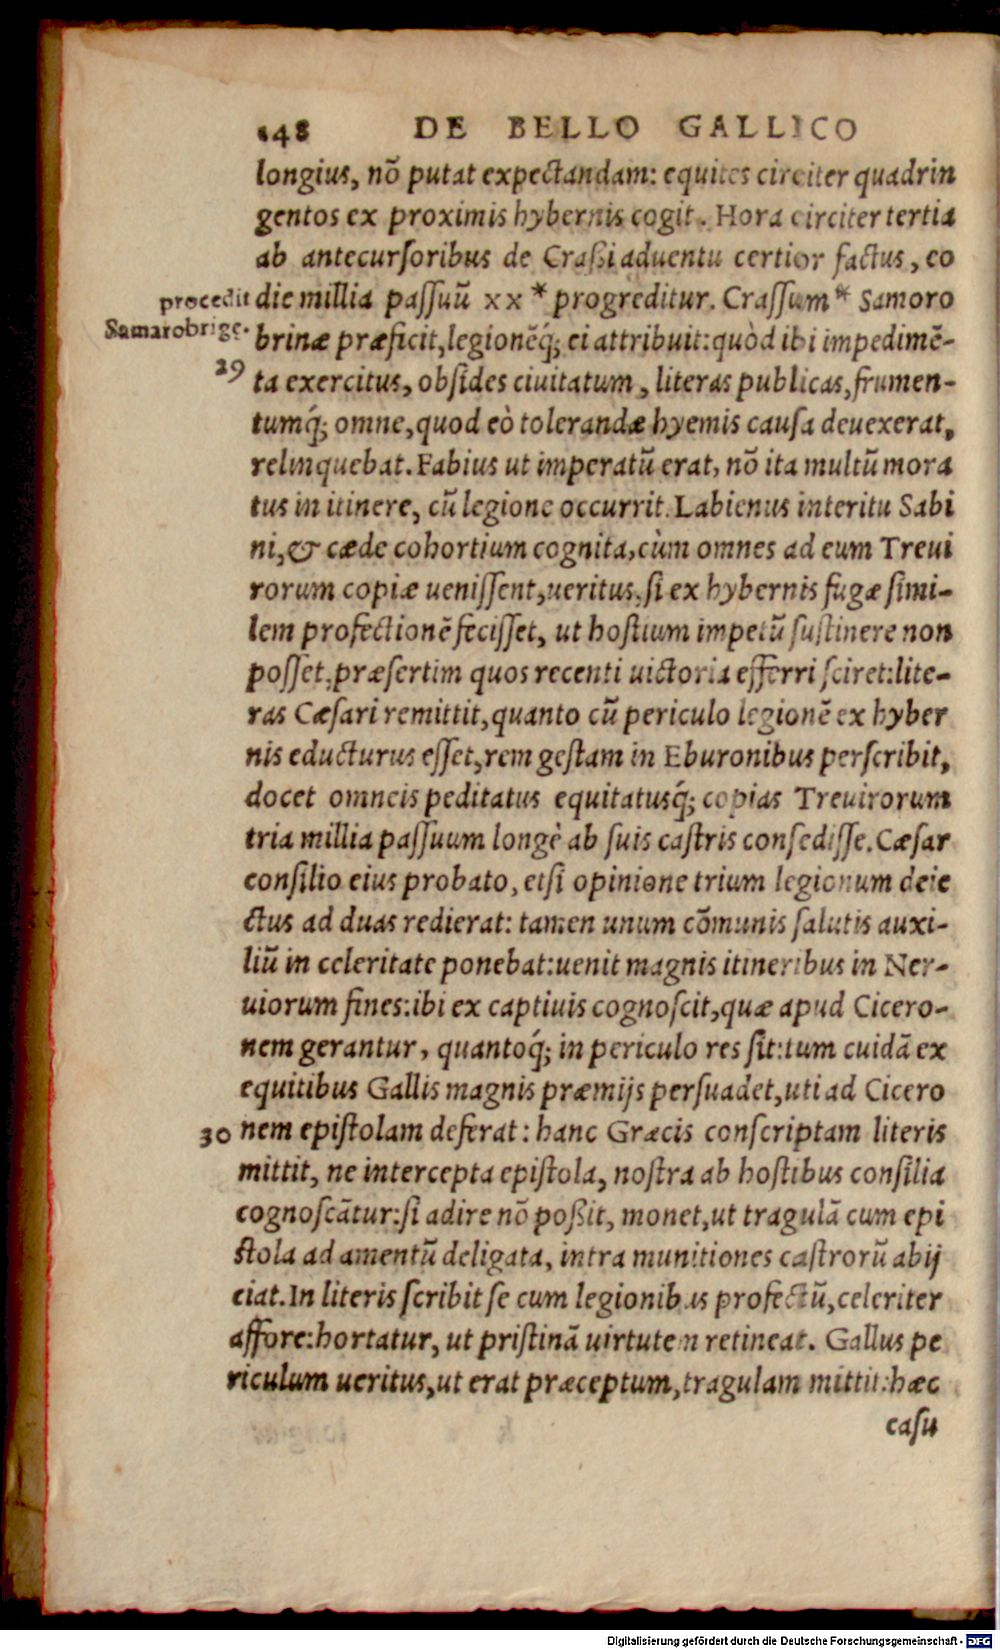 148 DE BELLO GALLICO
longius, nõ putat expectandam: equites circiter quadrin
gentos ex proximis hybernis cogit. Hora circiter tertia
ab antecursoribus de Craßi aduentu certior factus, eo
die millia passuũ xx * progreditur. Crassum * Samoro
procedit
Samarobrige.
brinæ præficit, legionẽq́; ei attribuit: quòd ibi impedimẽ-
29
ta exercitus, obsides ciuitatum, literas publicas, frumen-
tumq́; omne, quod eò tolerandæ hyemis causa deuexerat,
relinquebat. Fabius ut imperatũ erat, nõ ita multũ mora
tus in itinere, cũ legione occurrit. Labienus interitu Sabi
ni, & cæde cohortium cognita, cùm omnes ad eum Treui
rorum copiæ uenissent, ueritus, si ex hybernis fugæ simi-
lem profectionẽ fecisset, ut hostium impetũ sustinere non
posset, præsertim quos recenti uictoria efferri sciret: lite-
ras Cæsari remittit, quanto cũ periculo legionẽ ex hyber
nis educturus esset, rem gestam in Eburonibus perscribit,
docet omneis peditatus equitatusq́; copias Treuirorum
tria millia passuum longè ab suis castris consedisse. Cæsar
consilio eius probato, etsi opinione trium legionum deie
ctus ad duas redierat: tamen unum cõmunis salutis auxi-
liũ in celeritate ponebat: uenit magnis itineribus in Ner-
uiorum fines: ibi ex captiuis cognoscit, quæ apud Cicero-
nem gerantur, quantoq́; in periculo res sit: tum cuidã ex
equitibus Gallis magnis præmijs persuadet, uti ad Cicero
30 nem epistolam deferat: hanc Græcis conscriptam literis
mittit, ne intercepta epistola, nostra ab hostibus consilia
cognoscãtur: si adire nõ poßit, monet, ut tragulã cum epi
stola ad amentũ deligata, intra munitiones castrorũ abij
ciat. In literis scribit se cum legionibus profectũ, celeriter
affore: hortatur, ut pristinã uirtutem retineat. Gallus pe
riculum ueritus, ut erat præceptum, tragulam mittit: hæc
casu
Digitalisierung gefördert durch die Deutsche Forschungsgemeinschaft - DFG